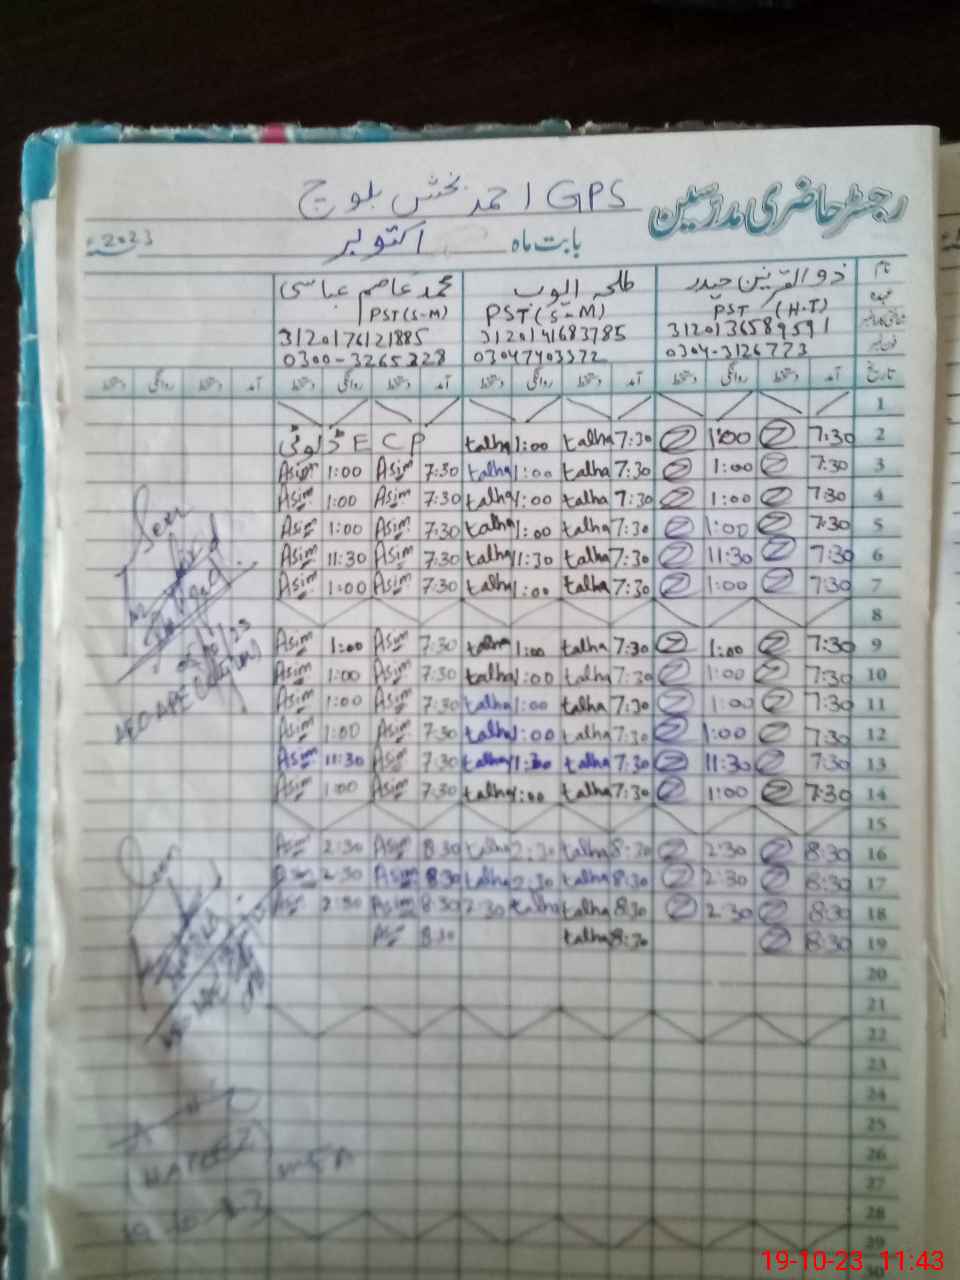 رجسٹر حاضری مدرسین GPS احمد بخش بلوچ
بابت ماہ اکتوبر 2023ء
نام ذوالقرنین حیدر طلحہ ایوب محمد عاصم عباسی
عہدہ PST (H.T) PST (S-M) PST (S-M)
شناختی کارڈ نمبر 3120136589591 3120141683785 3120176121885
فون نمبر 0304-3126773 03047403372 0300-3265328
تاریخ آمد دستخط روانگی دستخط آمد دستخط روانگی دستخط آمد دستخط روانگی دستخط آمد دستخط روانگی دستخط
1
2 7:30 1:00 7:30 talha 1:00 talha E C P ڈیوٹی
3 7:30 1:00 7:30 talha 1:00 talha 7:30 Asim 1:00 Asim
4 7:30 1:00 7:30 talha 1:00 talha 7:30 Asim 1:00 Asim
5 7:30 1:00 7:30 talha 1:00 talha 7:30 Asim 1:00 Asim
6 7:30 11:30 7:30 talha 11:30 talha 7:30 Asim 11:30 Asim
7 7:30 1:00 7:30 talha 1:00 talha 7:30 Asim 1:00 Asim
8
9 7:30 1:00 7:30 talha 1:00 talha 7:30 Asim 1:00 Asim
10 7:30 1:00 7:30 talha 1:00 talha 7:30 Asim 1:00 Asim
11 7:30 1:00 7:30 talha 1:00 talha 7:30 Asim 1:00 Asim
12 7:30 1:00 7:30 talha 1:00 talha 7:30 Asim 1:00 Asim
13 7:30 11:30 7:30 talha 11:30 talha 7:30 Asim 11:30 Asim
14 7:30 1:00 7:30 talha 1:00 talha 7:30 Asim 1:00 Asim
15
16 8:30 2:30 8:30 talha 2:30 talha 8:30 Asim 2:30 Asim
17 8:30 2:30 8:30 talha 2:30 talha 8:30 Asim 2:30 Asim
18 8:30 2:30 8:30 talha talha 2:30 8:30 Asim 2:30 Asim
19 8:30 8:30 talha 8:30 Asim
20
21
22
23
24
25
26
27
28
29
30
Seen
Seen
(HAFEEZ)
MEA
19-10-23 11:43